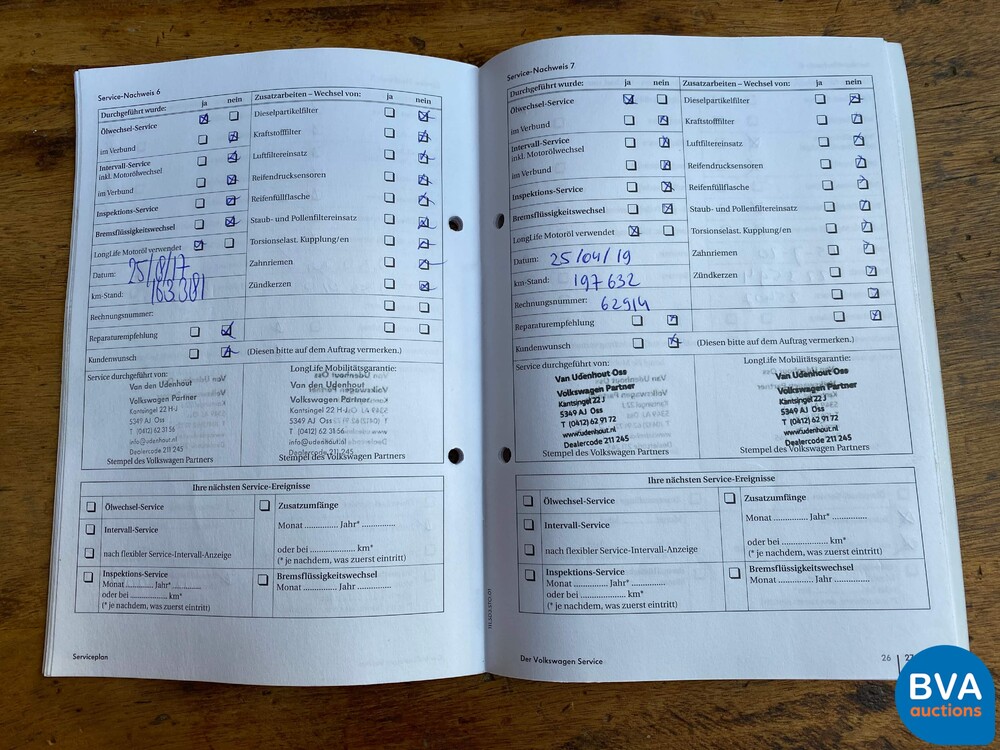 Service-Nachweis 6
Durchgeführt wurde: ja nein Zusatzarbeiten – Wechsel von: ja nein
Ölwechsel-Service Dieselpartikelfilter
im Verbund Kraftstofffilter
Intervall-Service Luftfiltereinsatz
inkl. Motorölwechsel
im Verbund Reifendrucksensoren
Inspektions-Service Reifenfüllflasche
Bremsflüssigkeitswechsel Staub- und Pollenfiltereinsatz
LongLife Motoröl verwendet Torsionselast. Kupplung/en
Datum: 25/8/17 Zahnriemen
km-Stand: 163.381 Zündkerzen
Rechnungsnummer:
Reparaturempfehlung
Kundenwunsch (Diesen bitte auf dem Auftrag vermerken.)
Service durchgeführt von: LongLife Mobilitätsgarantie:
Van den Udenhout Van den Udenhout
Volkswagen Partner Volkswagen Partner
Kantsingel 22 H-J Kantsingel 22
5349 AJ Oss 5349 AJ Oss
T (0412) 62 31 56 T (0412) 62 31 56
info@udenhout.nl info@udenhout.nl
Dealercode 211 245 Dealercode 211 245
Stempel des Volkswagen Partners Stempel des Volkswagen Partners
Ihre nächsten Service-Ereignisse
Ölwechsel-Service Zusatzumfänge
Intervall-Service Monat .............. Jahr* ..............
nach flexibler Service-Intervall-Anzeige oder bei ........................ km*
(* je nachdem, was zuerst eintritt)
Inspektions-Service Bremsflüssigkeitswechsel
Monat ............ Jahr* ............ Monat ............ Jahr ............
oder bei ........................ km*
(* je nachdem, was zuerst eintritt)
Serviceplan
Service-Nachweis 7
Durchgeführt wurde: ja nein Zusatzarbeiten – Wechsel von: ja nein
Ölwechsel-Service Dieselpartikelfilter
im Verbund Kraftstofffilter
Intervall-Service Luftfiltereinsatz
inkl. Motorölwechsel
im Verbund Reifendrucksensoren
Inspektions-Service Reifenfüllflasche
Bremsflüssigkeitswechsel Staub- und Pollenfiltereinsatz
LongLife Motoröl verwendet Torsionselast. Kupplung/en
Datum: 25/04/19 Zahnriemen
km-Stand: 197 632 Zündkerzen
Rechnungsnummer: 62914
Reparaturempfehlung
Kundenwunsch (Diesen bitte auf dem Auftrag vermerken.)
Service durchgeführt von: LongLife Mobilitätsgarantie:
Van Udenhout Oss Van Udenhout Oss
Volkswagen Partner Volkswagen Partner
Kantsingel 22 J Kantsingel 22 J
5349 AJ Oss 5349 AJ Oss
T (0412) 62 91 72 T (0412) 62 91 72
www.udenhout.nl www.udenhout.nl
Dealercode 211 245 Dealercode 211 245
Stempel des Volkswagen Partners Stempel des Volkswagen Partners
Ihre nächsten Service-Ereignisse
Ölwechsel-Service Zusatzumfänge
Intervall-Service Monat .............. Jahr* ..............
nach flexibler Service-Intervall-Anzeige oder bei ........................ km*
(* je nachdem, was zuerst eintritt)
Inspektions-Service Bremsflüssigkeitswechsel
Monat ............ Jahr* ............ Monat ............ Jahr ............
oder bei ........................ km*
(* je nachdem, was zuerst eintritt)
Der Volkswagen Service 26
BVA
auctions